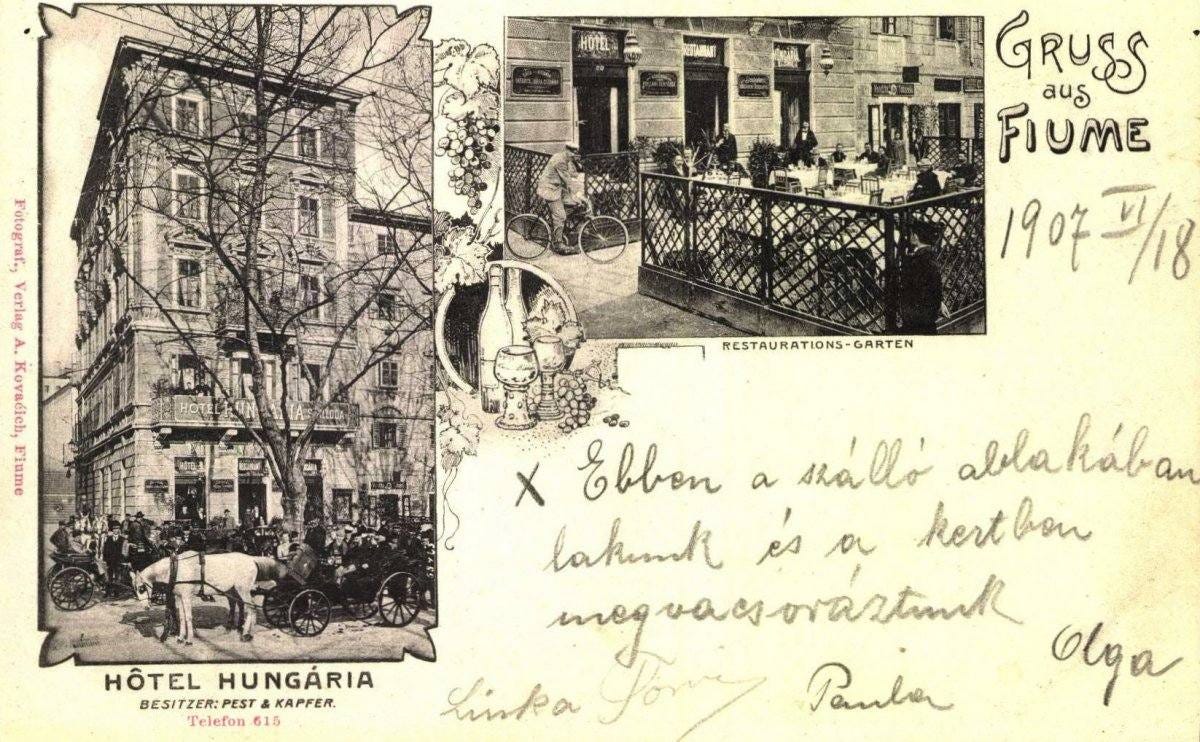 GRUSS
aus
FIUME
1907 VI/18
HOTEL
RESTAURANT
HOTEL HUNGARIA SZÁLLODA
HOTEL
RESTAURANT
RESTAURATIONS-GARTEN
Fotograf., Verlag A. Kovačich, Fiume
X Ebben a szálló ablakában
lakunk és a kertben
megvacsoráztunk
Olga
Paula
HÔTEL HUNGÁRIA
BESITZER: PEST & KAPFER.
Telefon 615